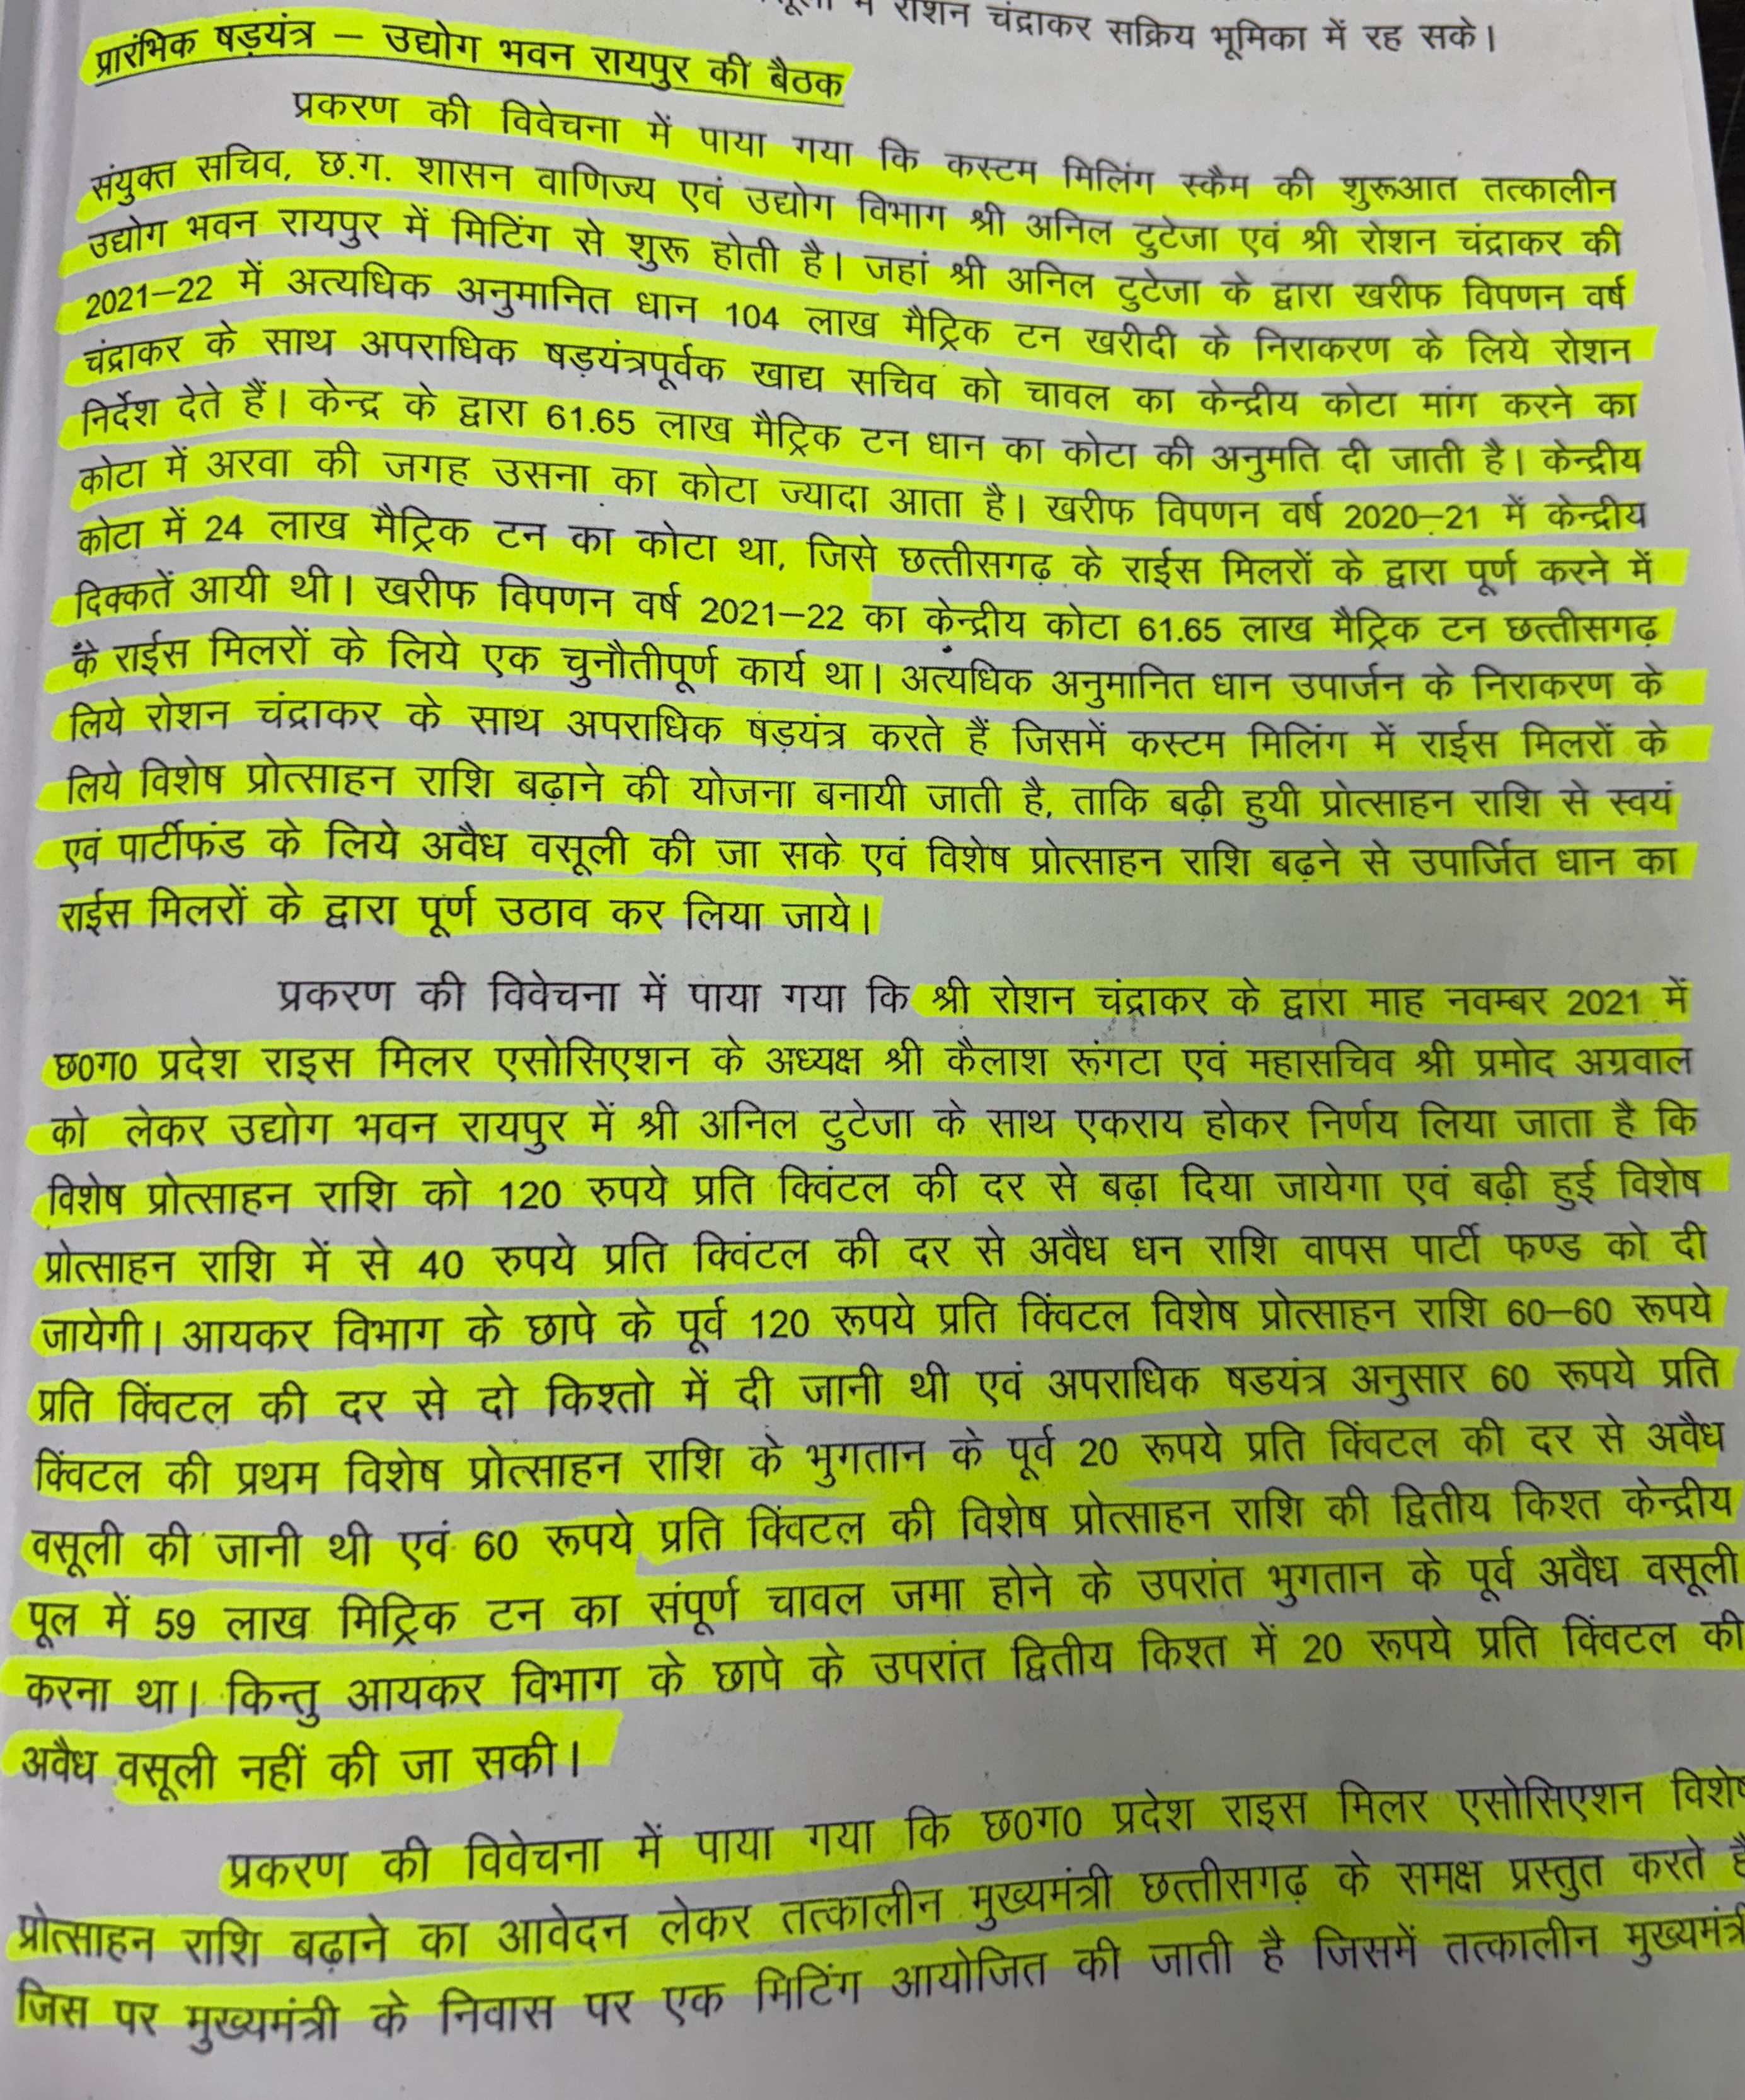 में रोशन चंद्राकर सक्रिय भूमिका में रह सके।
प्रारंभिक षड़यंत्र – उद्योग भवन रायपुर की बैठक
प्रकरण की विवेचना में पाया गया कि कस्टम मिलिंग स्कैम की शुरूआत तत्कालीन
संयुक्त सचिव, छ.ग. शासन वाणिज्य एवं उद्योग विभाग श्री अनिल टुटेजा एवं श्री रोशन चंद्राकर की
उद्योग भवन रायपुर में मिटिंग से शुरू होती है। जहां श्री अनिल टुटेजा के द्वारा खरीफ विपणन वर्ष
2021–22 में अत्यधिक अनुमानित धान 104 लाख मैट्रिक टन खरीदी के निराकरण के लिये रोशन
चंद्राकर के साथ अपराधिक षड़यंत्रपूर्वक खाद्य सचिव को चावल का केन्द्रीय कोटा मांग करने का
निर्देश देते हैं। केन्द्र के द्वारा 61.65 लाख मैट्रिक टन धान का कोटा की अनुमति दी जाती है। केन्द्रीय
कोटा में अरवा की जगह उसना का कोटा ज्यादा आता है। खरीफ विपणन वर्ष 2020–21 में केन्द्रीय
कोटा में 24 लाख मैट्रिक टन का कोटा था, जिसे छत्तीसगढ़ के राईस मिलरों के द्वारा पूर्ण करने में
दिक्कतें आयी थी। खरीफ विपणन वर्ष 2021–22 का केन्द्रीय कोटा 61.65 लाख मैट्रिक टन छत्तीसगढ़
के राईस मिलरों के लिये एक चुनौतीपूर्ण कार्य था। अत्यधिक अनुमानित धान उपार्जन के निराकरण के
लिये रोशन चंद्राकर के साथ अपराधिक षड़यंत्र करते हैं जिसमें कस्टम मिलिंग में राईस मिलरों के
लिये विशेष प्रोत्साहन राशि बढ़ाने की योजना बनायी जाती है, ताकि बढ़ी हुयी प्रोत्साहन राशि से स्वयं
एवं पार्टीफंड के लिये अवैध वसूली की जा सके एवं विशेष प्रोत्साहन राशि बढ़ने से उपार्जित धान का
राईस मिलरों के द्वारा पूर्ण उठाव कर लिया जाये।
प्रकरण की विवेचना में पाया गया कि श्री रोशन चंद्राकर के द्वारा माह नवम्बर 2021 में
छ०ग० प्रदेश राइस मिलर एसोसिएशन के अध्यक्ष श्री कैलाश रूंगटा एवं महासचिव श्री प्रमोद अग्रवाल
को लेकर उद्योग भवन रायपुर में श्री अनिल टुटेजा के साथ एकराय होकर निर्णय लिया जाता है कि
विशेष प्रोत्साहन राशि को 120 रुपये प्रति क्विंटल की दर से बढ़ा दिया जायेगा एवं बढ़ी हुई विशेष
प्रोत्साहन राशि में से 40 रुपये प्रति क्विंटल की दर से अवैध धन राशि वापस पार्टी फण्ड को दी
जायेगी। आयकर विभाग के छापे के पूर्व 120 रूपये प्रति क्विंटल विशेष प्रोत्साहन राशि 60–60 रूपये
प्रति क्विंटल की दर से दो किश्तो में दी जानी थी एवं अपराधिक षडयंत्र अनुसार 60 रूपये प्रति
क्विंटल की प्रथम विशेष प्रोत्साहन राशि के भुगतान के पूर्व 20 रूपये प्रति क्विंटल की दर से अवैध
वसूली की जानी थी एवं 60 रूपये प्रति क्विंटल की विशेष प्रोत्साहन राशि की द्वितीय किश्त केन्द्रीय
पूल में 59 लाख मिट्रिक टन का संपूर्ण चावल जमा होने के उपरांत भुगतान के पूर्व अवैध वसूली
करना था। किन्तु आयकर विभाग के छापे के उपरांत द्वितीय किश्त में 20 रूपये प्रति क्विंटल की
अवैध वसूली नहीं की जा सकी।
प्रकरण की विवेचना में पाया गया कि छ०ग० प्रदेश राइस मिलर एसोसिएशन विशेष
प्रोत्साहन राशि बढ़ाने का आवेदन लेकर तत्कालीन मुख्यमंत्री छत्तीसगढ़ के समक्ष प्रस्तुत करते है
जिस पर मुख्यमंत्री के निवास पर एक मिटिंग आयोजित की जाती है जिसमें तत्कालीन मुख्यमंत्री